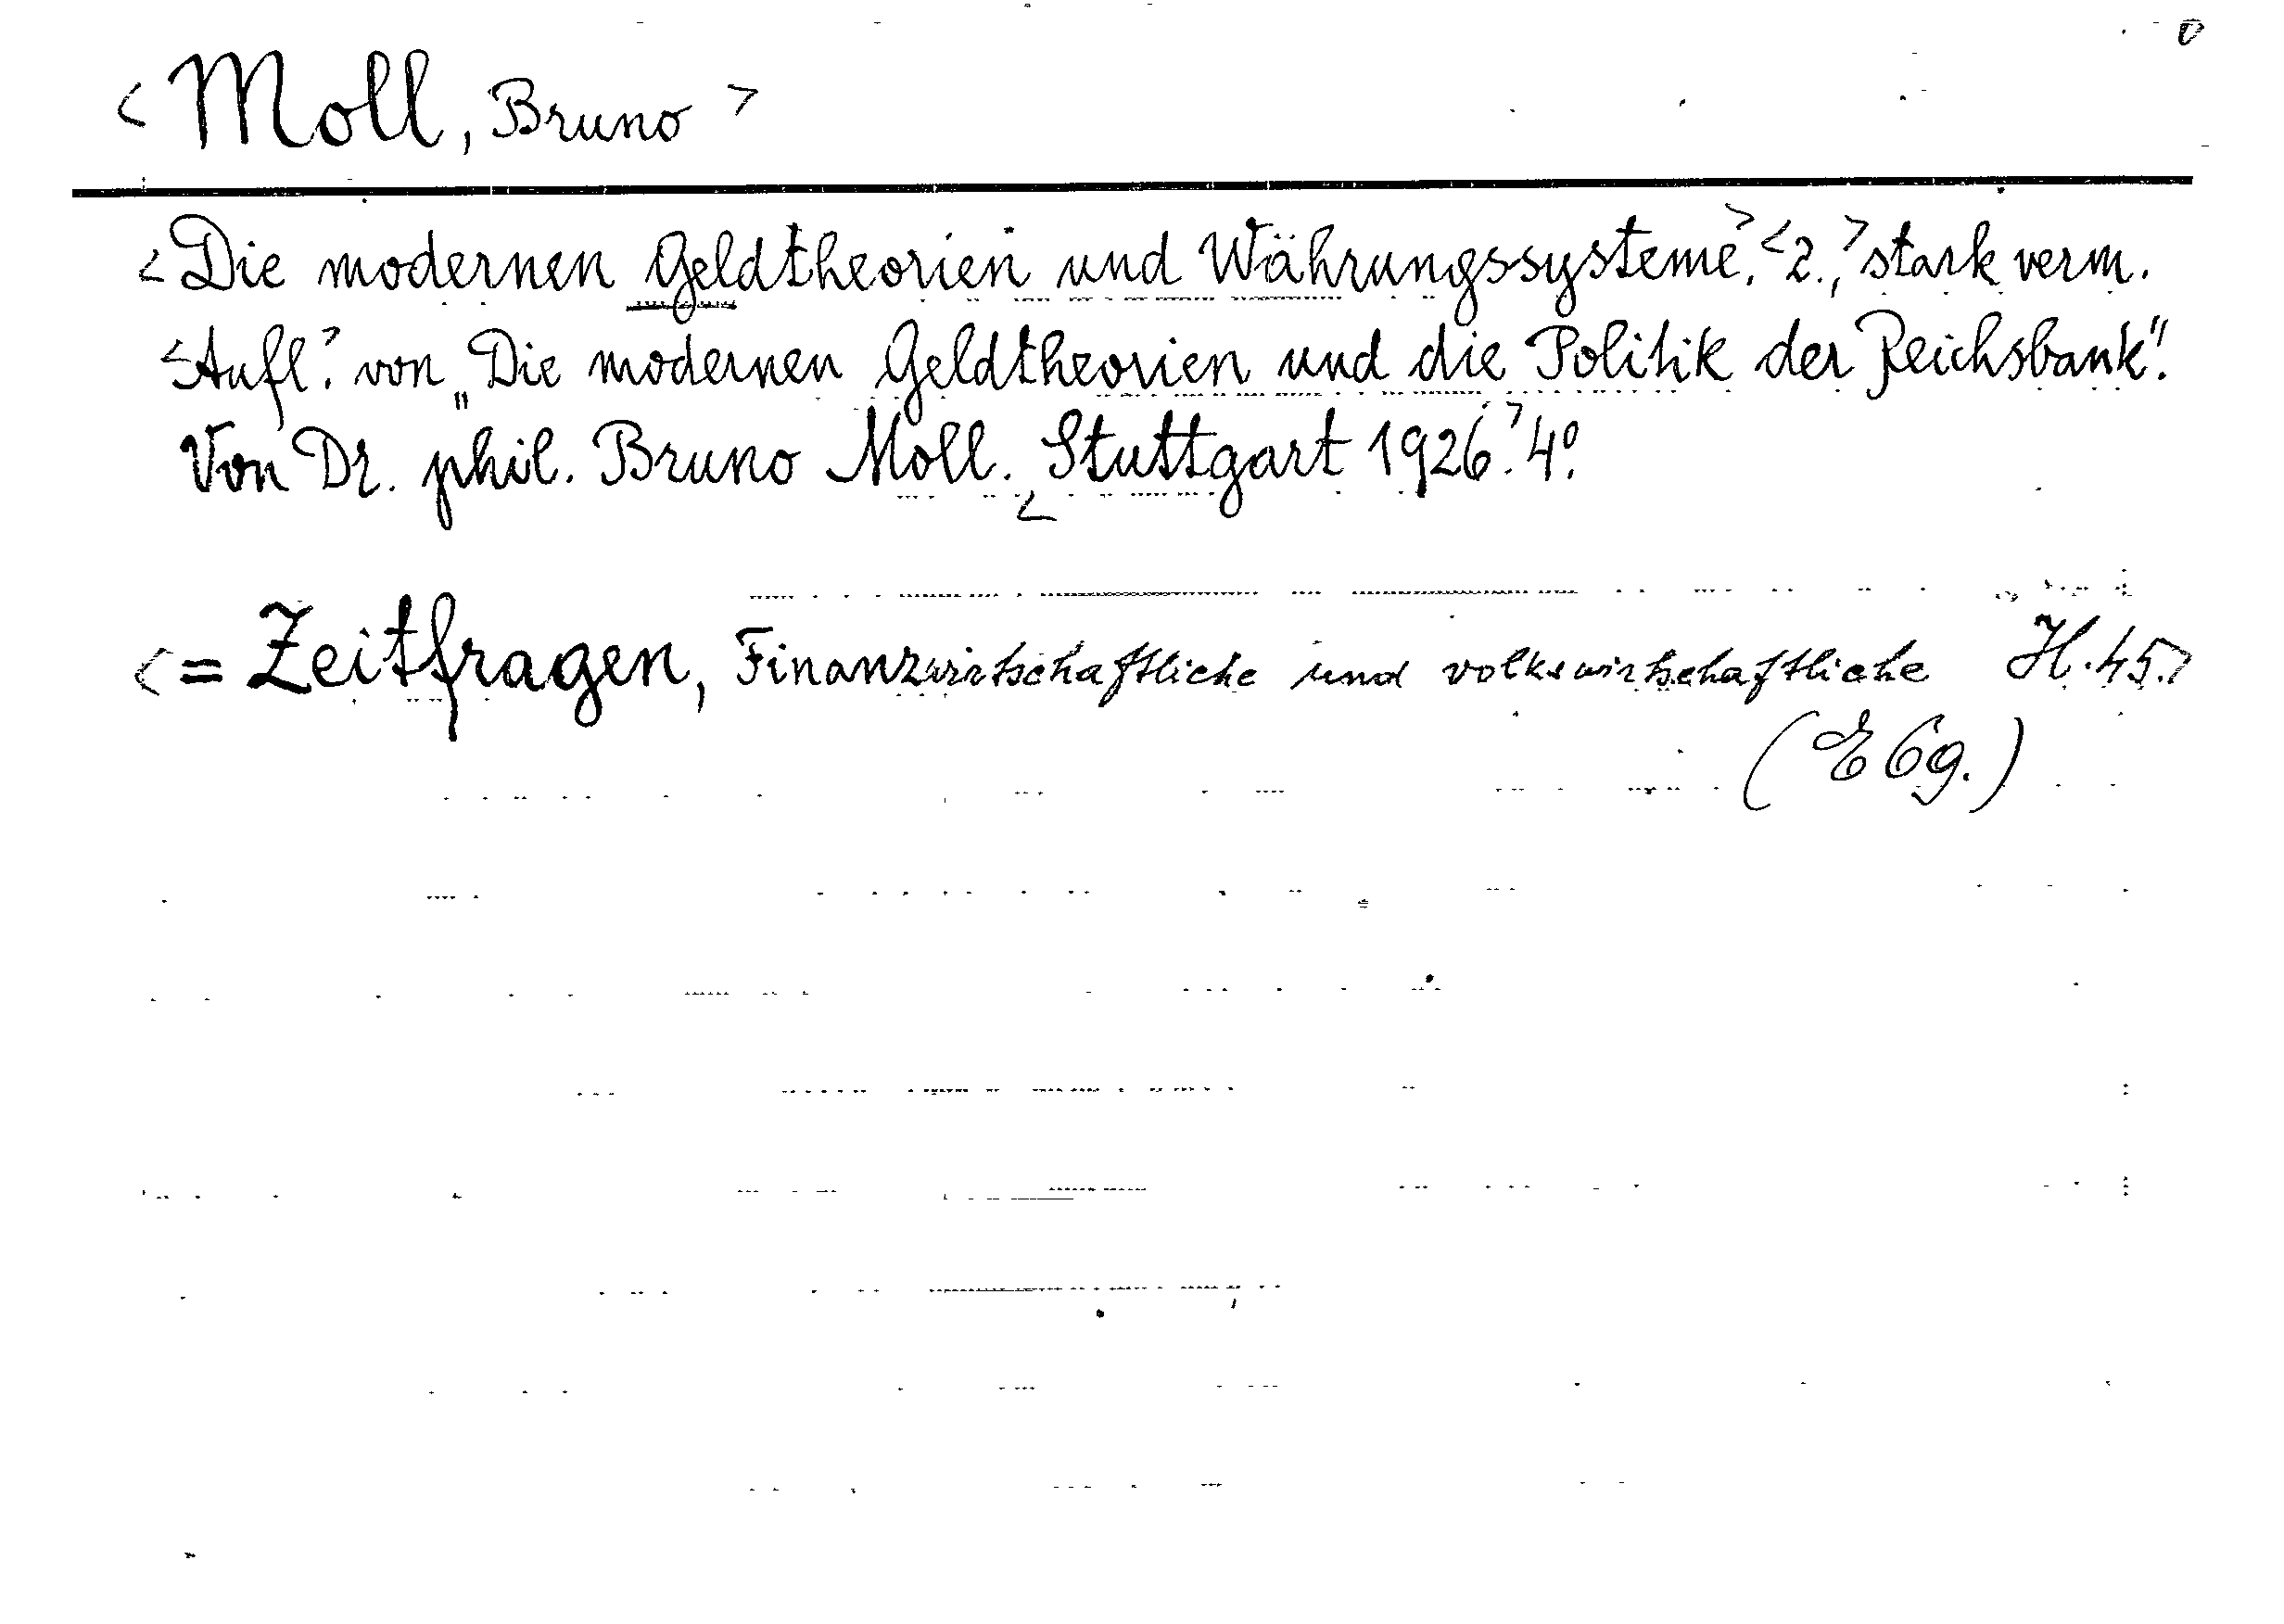 <Moll, Bruno>
<Die modernen Geldtheorien und Währungssysteme.> <2.,> stark verm.
<Aufl.> von „Die modernen Geldtheorien und die Politik der Reichsbank".
Von Dr. phil. Bruno Moll. <Stuttgart 1926.> 4°.
<= Zeitfragen, Finanzwirtschaftliche und volkswirtschaftliche H. 45.>
(E 6g.)